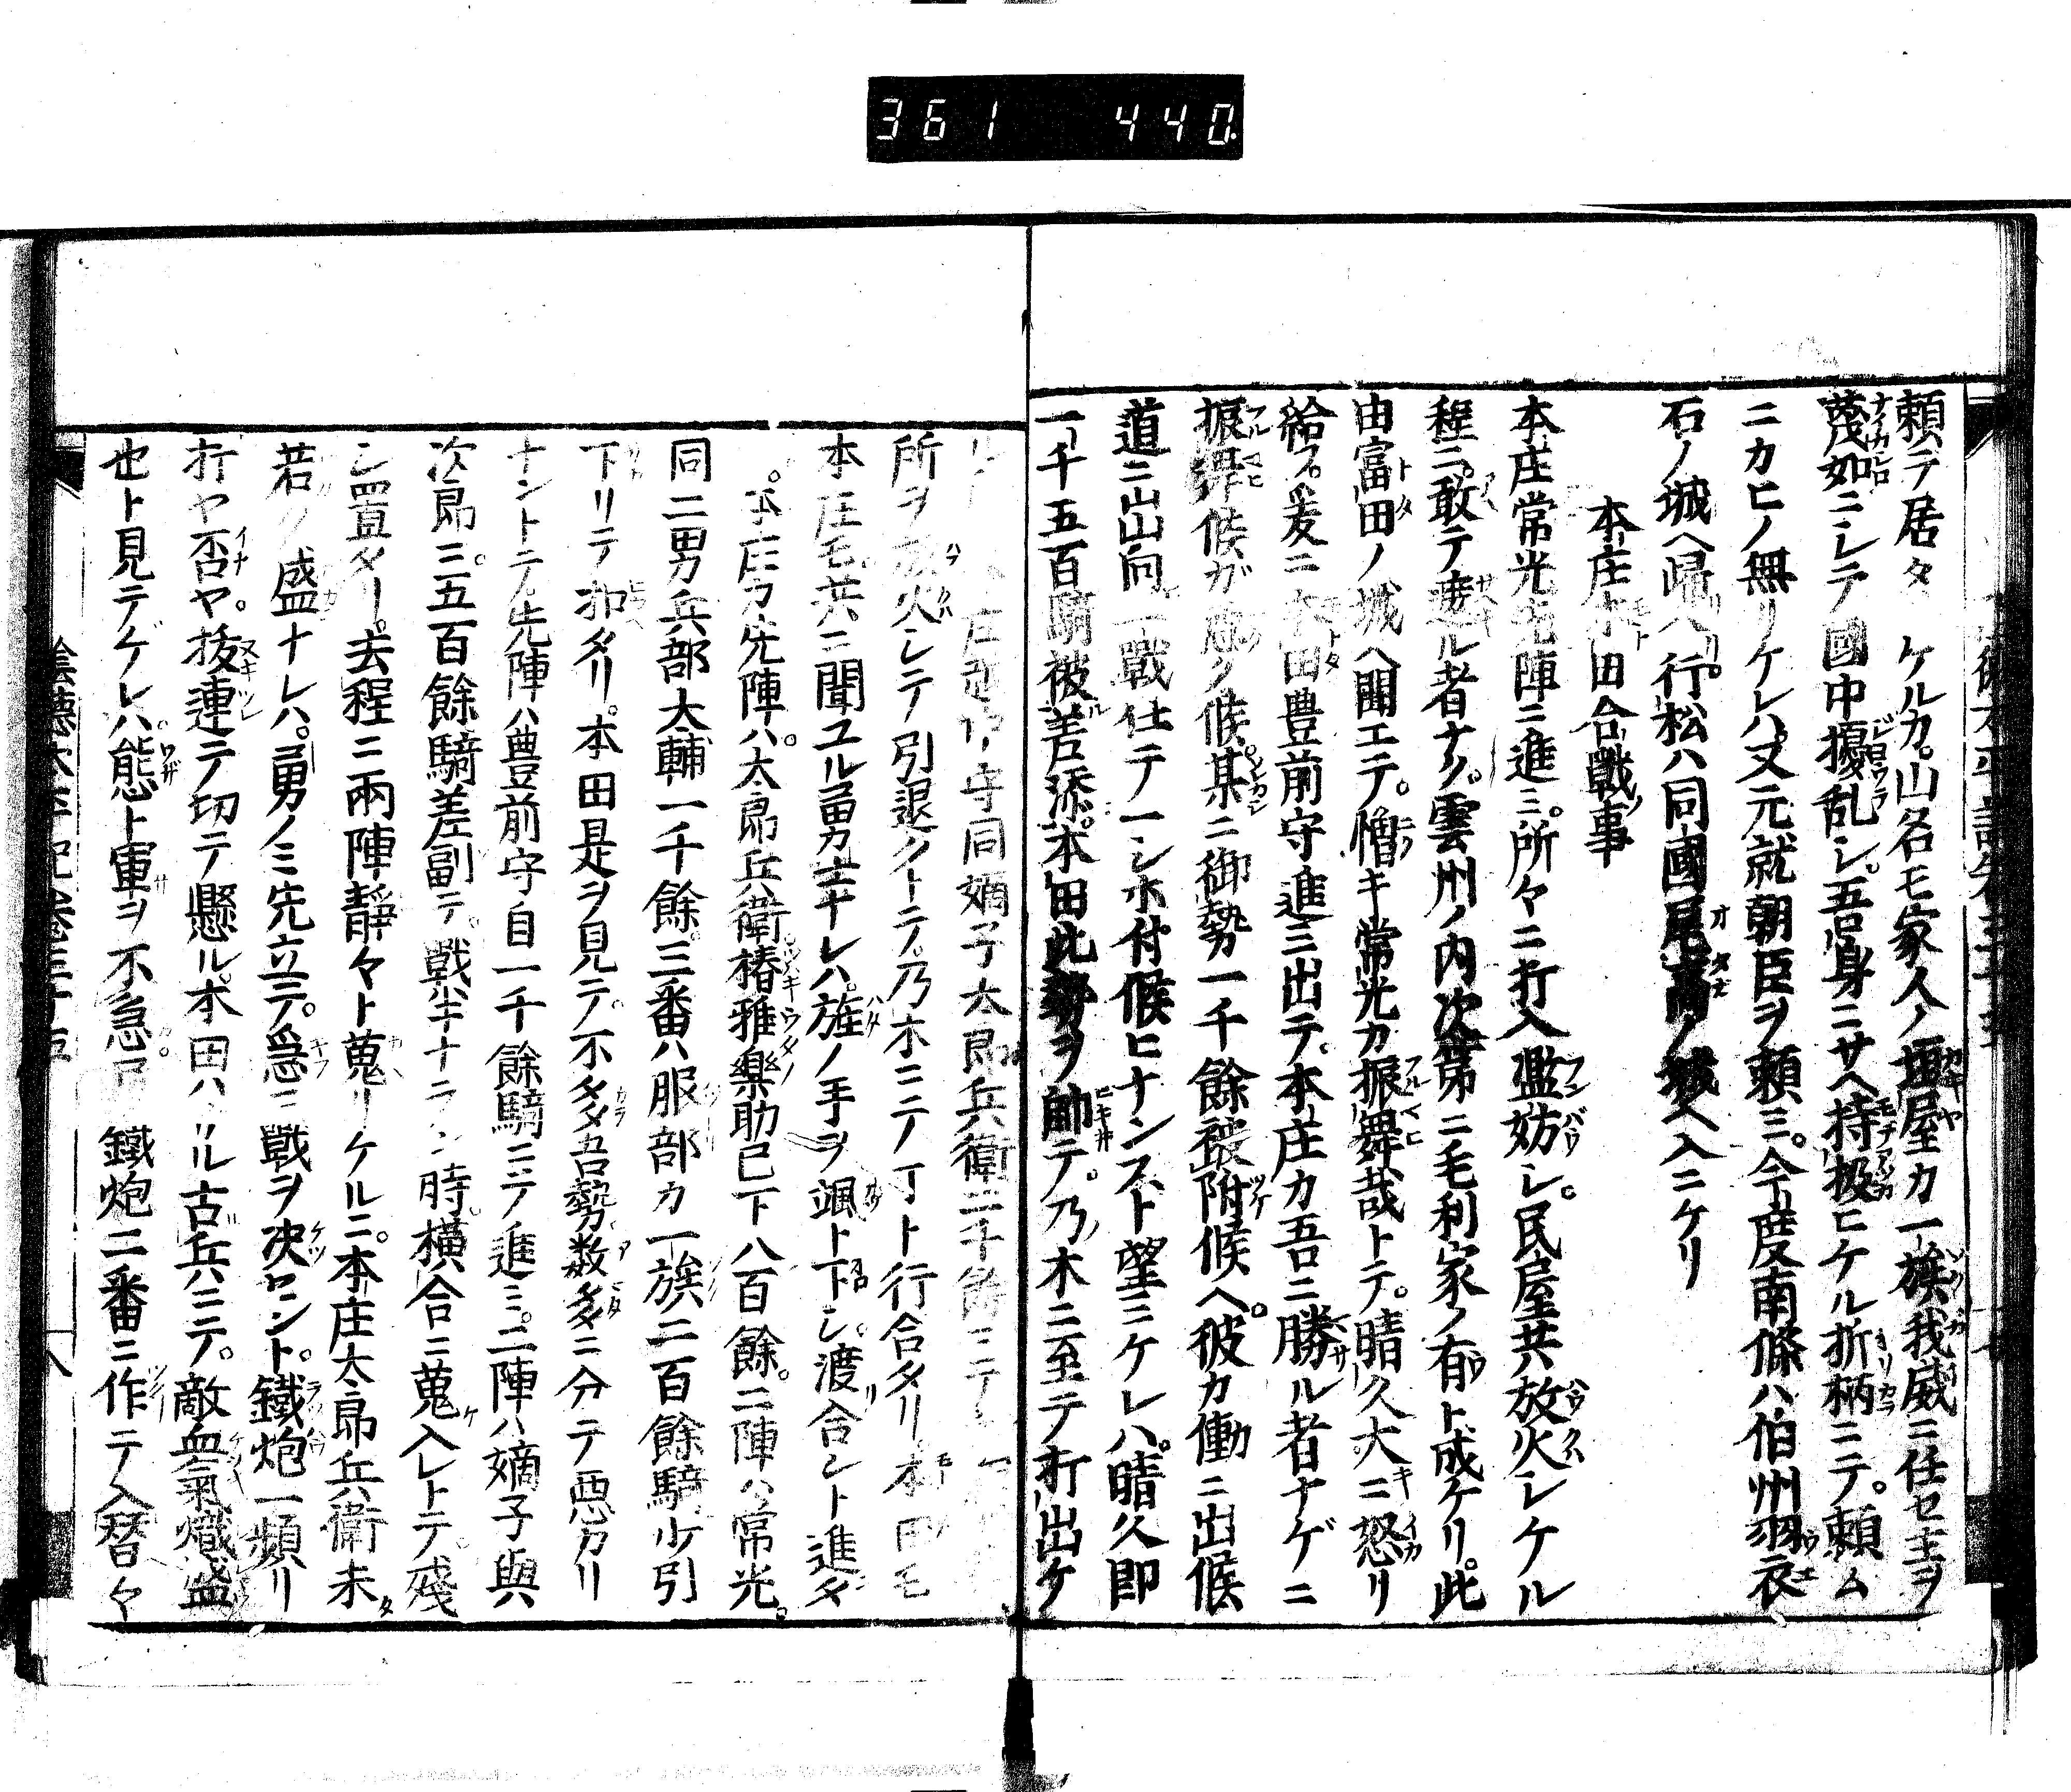 361 440
頼テ居タ ケルカ。山名モ家人ノ垣屋カ一族我威ニ任セ主ヲ
蔑如ニシテ國中擾乱シ。吾身ニサヘ持扱ヒケル折柄ニテ。頼ム
ニカヒノ無リケレハ又元就朝臣ヲ頼ミ。今度南條ハ伯州羽衣
石ノ城ヘ帰入。行松ハ同國尾高ノ城ヘ入ニケリ
本庄本田合戰ノ事
本庄常光先陣ニ進ミ。所々ニ打入濫妨シ。民屋共放火シケル
程ニ。敢テ遮ル者ナク。雲州ノ内次第ニ毛利家ノ有ト成ケリ。此
由富田ノ城ヘ聞エテ。憎キ常光カ振舞哉トテ。晴久大ニ怒リ
給フ。爰ニ本田豊前守進ミ出テ。本庄カ吾ニ勝ル者ナゲニ
振舞候ガ 候某ニ御勢一千餘被附候ヘ。彼カ働ニ出候
道ニ出向 一戰仕テ一シホ付候ヒナンスト望ミケレハ。晴久即
一千五百騎被差添。本田此勢ヲ帥テ。乃木ニ至テ打出ケ
庄越中守同嫡子太郎兵衛二千餘ニテ
所ヲ放火シテ引退クトテ。乃木ニテ丁ト行合タリ。本田モ
本庄モ共ニ聞ユル勇士ナレハ。旌ノ手ヲ颯ト下シ。渡合ント進タ
。本庄カ先陣ハ。太郎兵衛。椿雅樂助已下八百餘。二陣ハ常光。
同二男兵部大輔一千餘。三番ハ服部カ一族二百餘騎少引
下リテ扣タリ。本田是ヲ見テ。不多吾勢数多ニ分テ悪カリ
ナントテ。先陣ハ豊前守自一千餘騎ニテ進ミ。二陣ハ嫡子與
次郎ニ。五百餘騎差副テ。戰半ナラン時。横合ニ蒐入レトテ。殘
シ置タリ。去程ニ兩陣靜々ト蒐リケルニ。本庄太郎兵衛未
若ク盛ナレハ。勇ノミ先立テ。急ニ戰ヲ决セント。鐵炮一頻リ
打ヤ否ヤ。抜連テ切テ懸ル。本田ハ ル古兵ニテ。敵血氣熾盛
也ト見テゲレハ。態ト軍ヲ不急 鐵炮二番ニ作テ入替々
陰徳太平記巻三十五
八